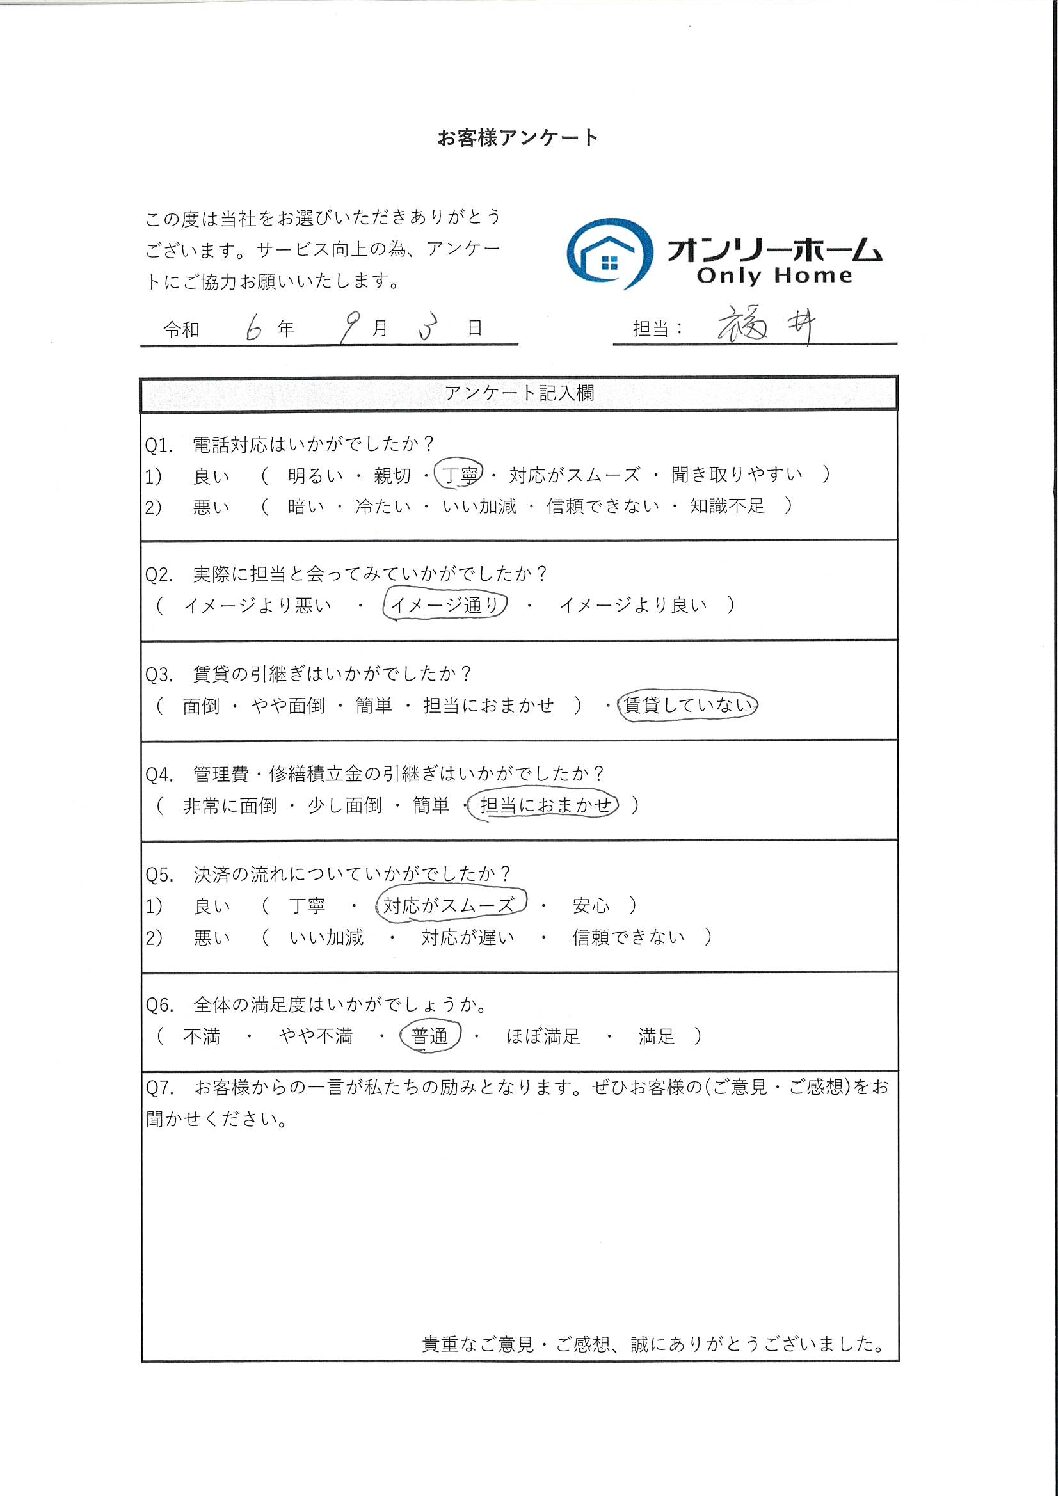 お客様アンケート
この度は当社をお選びいただきありがとう
ございます。サービス向上の為、アンケー
トにご協力お願いいたします。
オンリーホーム
Only Home
令和 6 年 9 月 3 日
担当： 福井
アンケート記入欄
Q1. 電話対応はいかがでしたか？
1) 良い （ 明るい ・ 親切 ・ 丁寧 ・ 対応がスムーズ ・ 聞き取りやすい ）
2) 悪い （ 暗い ・ 冷たい ・ いい加減 ・ 信頼できない ・ 知識不足 ）
Q2. 実際に担当と会ってみていかがでしたか？
（ イメージより悪い ・ イメージ通り ・ イメージより良い ）
Q3. 賃貸の引継ぎはいかがでしたか？
（ 面倒 ・ やや面倒 ・ 簡単 ・ 担当におまかせ ） ・ 賃貸していない
Q4. 管理費・修繕積立金の引継ぎはいかがでしたか？
（ 非常に面倒 ・ 少し面倒 ・ 簡単 ・ 担当におまかせ ）
Q5. 決済の流れについていかがでしたか？
1) 良い （ 丁寧 ・ 対応がスムーズ ・ 安心 ）
2) 悪い （ いい加減 ・ 対応が遅い ・ 信頼できない ）
Q6. 全体の満足度はいかがでしょうか。
（ 不満 ・ やや不満 ・ 普通 ・ ほぼ満足 ・ 満足 ）
Q7. お客様からの一言が私たちの励みとなります。ぜひお客様の(ご意見・ご感想)をお
聞かせください。
貴重なご意見・ご感想、誠にありがとうございました。